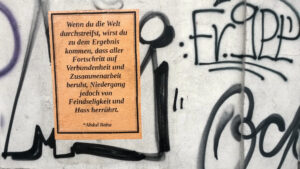 Wenn du die Welt
durchstreifst, wirst du
zu dem Ergebnis
kommen, dass aller
Fortschritt auf
Verbundenheit und
Zusammenarbeit
beruht, Niedergang
jedoch von
Feindseligkeit und
Hass herrührt.
*Abdul Baha